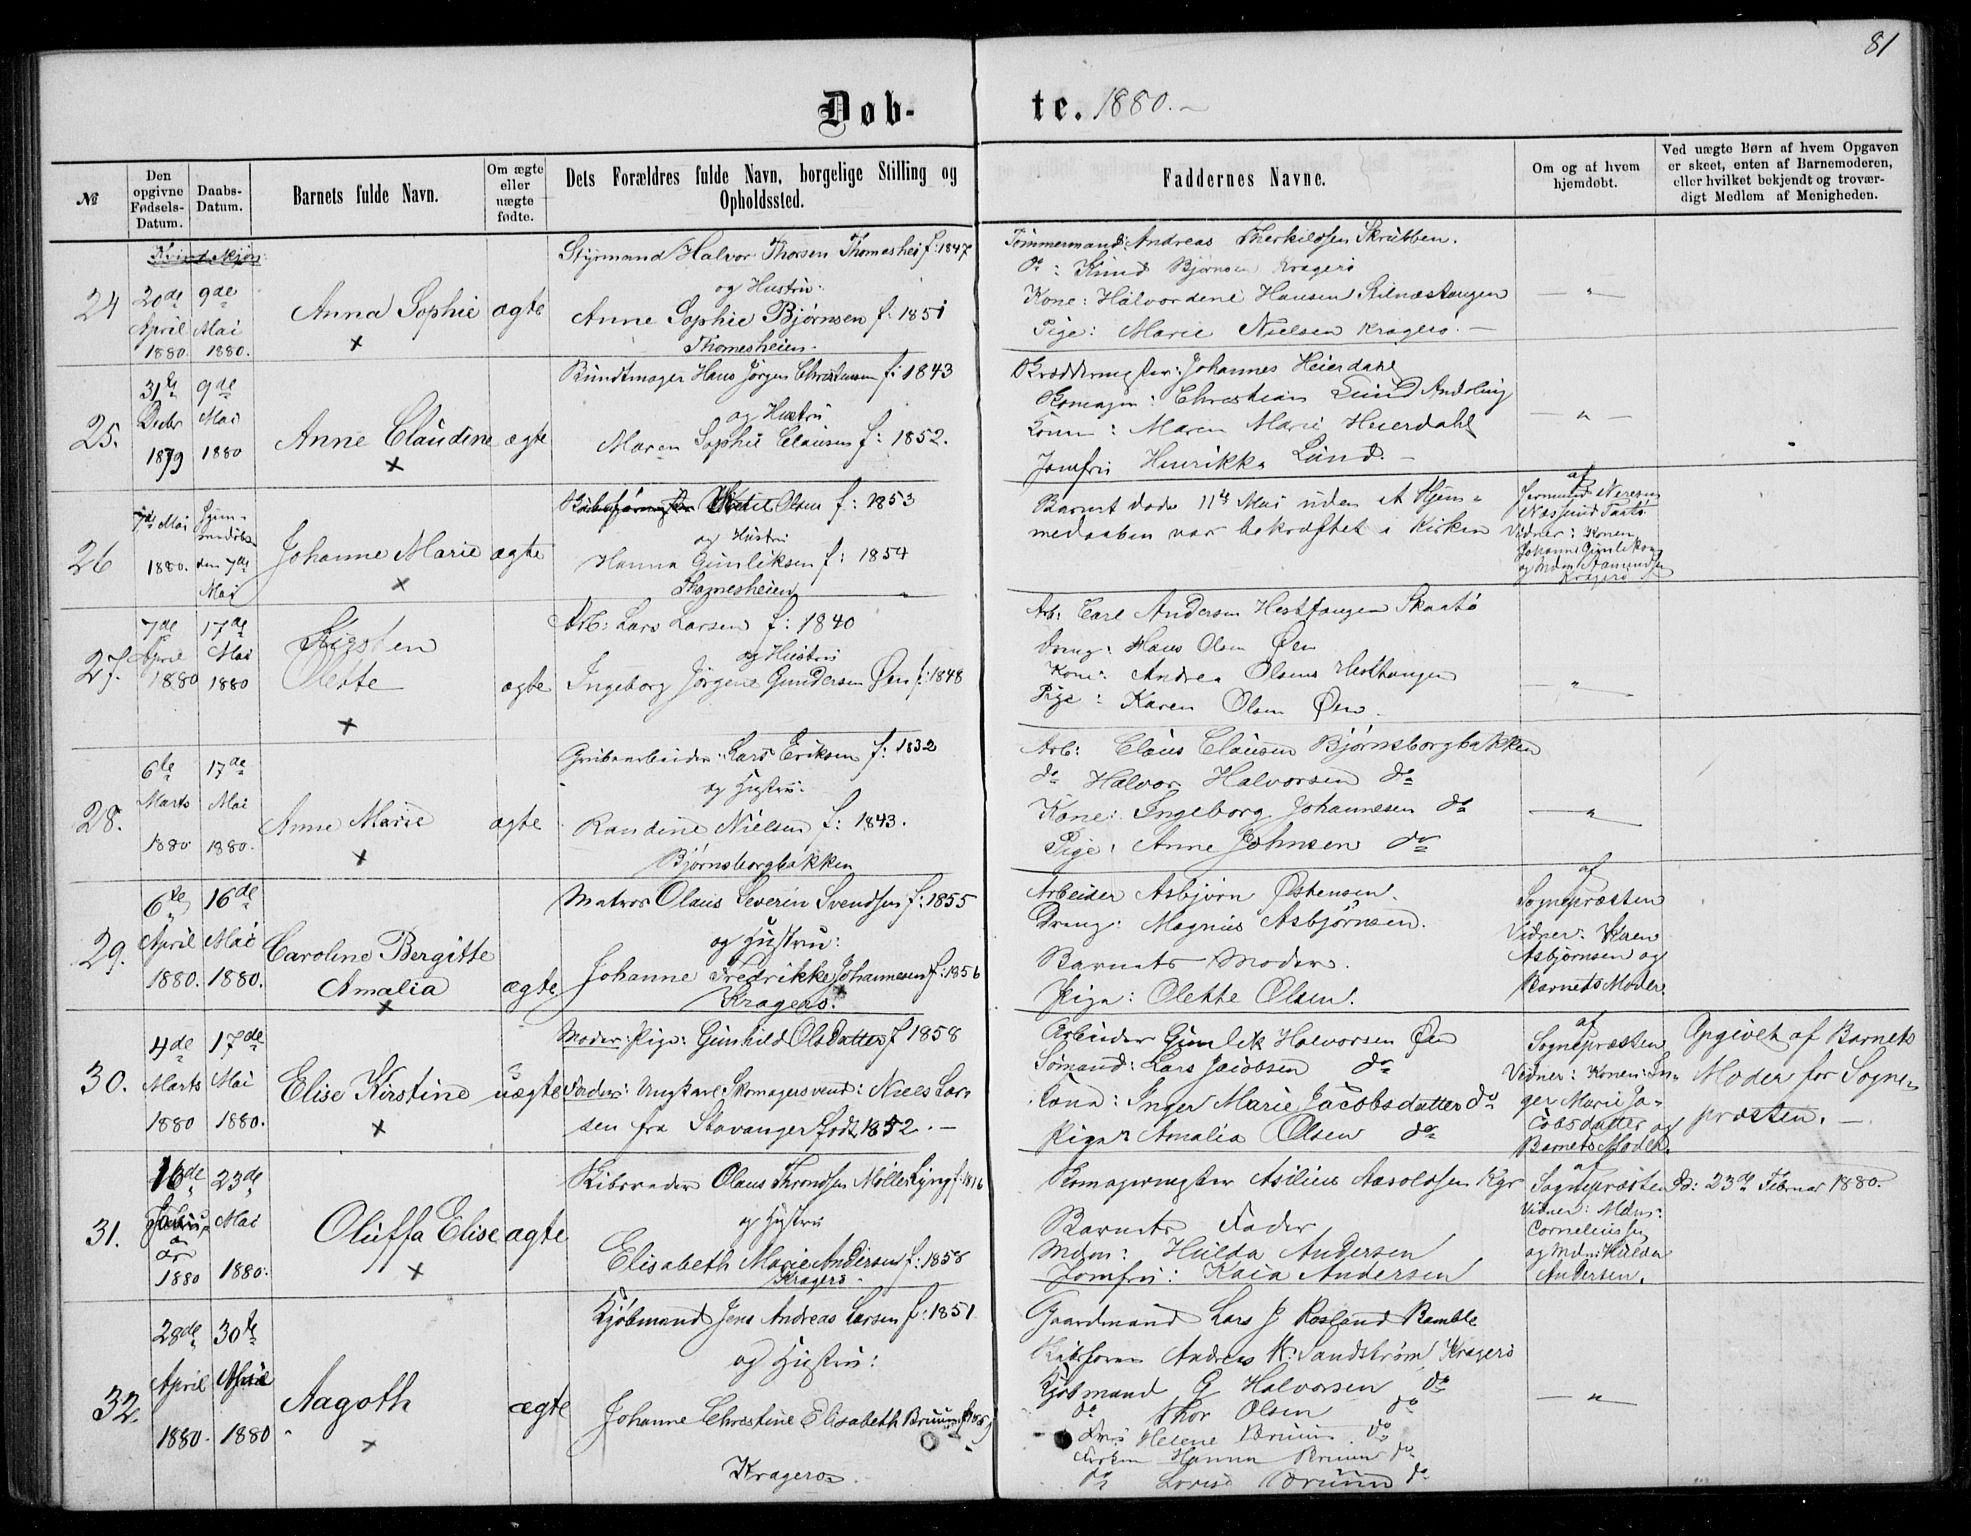 81
Døb-
te. 1880.
№
Den opgivne Fødsels-Datum.
Daabs-Datum.
Barnets fulde Navn.
Om ægte eller uægte fødte.
Dets Forældres fulde Navn, borgelige Stilling og Opholdssted.
Faddernes Navne.
Om og af hvem hjemdøbt.
Ved uægte Børn af hvem Opgaven er skeet, enten af Barnemoderen, eller hvilket bekjendt og troværdigt Medlem af Menigheden.
24
20de April 1880
9de Mai 1880.
Anna Sophie
ægte
Styrmand Halvor Thorsen Thomeshei f: 1847
og Hustru
Anne Sophie Bjørnsen f. 1851
Thomesheien.
Tømmermand: Andreas Therkildsen Skrubben.
do: Knud Bjørnsen Kragerø
Kone: Halvordine Hansen Stilnæstangen
Pige: Marie Nielsen Kragerø.
— " —
25.
31te Decbr 1879
9de Mai 1880
Anne Claudine
ægte
Bundtmager Hans Jørgen Christensen f: 1843
og Hustru
Maren Sophie Clausen f: 1852.
Johannes Heierdahl
Christian Lund
Kone: Maren Marie Heierdahl
Jomfru Henrikka Lund.
— " —
26
7de Mai 1880.
Hjemmedøbt den 7de Mai
Johanne Marie
ægte
Olsen f: 1853
og Hustru
Hanna Gunleksen f: 1854
Thomesheien
Barnet døde 11te Mai uden at Hjem-
medaaben var bekræftet i Kirken
af
Vidner: Konen
Johanne Gunleksen
Kragerø
27.
7de April 1880
17de Mai 1880
Kirsten
Olette
ægte
Arb: Lars Larsen f: 1840
og Hustru
Ingeborg Jørgine Gundersen Øen f: 1848
Arb: Carl Andersen Hesttangen Skaatø
Dreng: Hans Olsen Øen
Kone: Andrea Olsens Hesttangen
Pige: Karen Olsen Øen.
— " —
28.
6te Marts 1880
17de Mai 1880.
Anne Marie
ægte
Grubearbeider: Lars Eriksen f: 1832
og Hustru
Randine Nielsen f: 1843.
Bjørnsborgbakken
Arb: Claus Clausen Bjørnsborgbakken
do Halvor Halvorsen do
Kone: Ingeborg Johannesen do
Pige: Anne Johnsen do
— " —
29.
6te April 1880.
16de Mai 1880.
Caroline Bergitte
Amalia
ægte
Matros Olaus Severin Svendsen f: 1855
og Hustru:
Johanne Fredrikke Johannesen f: 1856
Kragerø.
Arbeider Asbjørn Østensen.
Dreng: Magnus Asbjørnsen.
Barnets Moder.
Pige: Olette Olsen.
af
Sognepræsten
Vidner:
Asbjørnsen og
Barnets Moder.
30.
4de Marts 1880
17de Mai 1880.
Elise Kirstine
uægte
Moder: Pige: Gunhild Olsdatter f 1858
Fader: Ungkarl Skomagersvend: Niels Lar-
sen fra Stavanger født 1852.
Arbeider Gunlek Halvorsen Øen
Sømand: Lars Jacobsen do
Kone: Inger Marie Jacobsdatter do
Pige: Amalia Olsen do
af
Sognepræsten
Vidner: Konen: In-
ger Marie Ja-
cobsdatter og
Barnets Moder.
Opgivet af Barnets
Moder for Sogne-
præsten.
31.
16de 1880
23de Mai 1880.
Oluffa Elise
ægte
Olaus Throndsen f: 1846
og Hustru
Elisabeth Marie Andersen f: 1858
Kragerø.
Barnets Fader
Mdm: Hulda Andersen
Jomfru: Kaia Andersen
af
Sognepræsten
Vidner: Mdm:
og Mdm: Hulda
Andersen.
D: 23de Februar 1880.
32.
28de April 1880.
30te 1880
Aagoth
ægte
Kjøbmand Jens Andreas Larsen f: 1851
og Hustru:
Johanne Christine Elisabeth Bruun
Kragerø
Gaardmand Lars J Rosland Bamble
Andreas Sandstrøm Kragerø
Kjøbmand G Halvorsen do
do Thor Olsen do
Helene Bruun do
Frøken Hanna Bruun do
do Lovise Bruun do
— " —